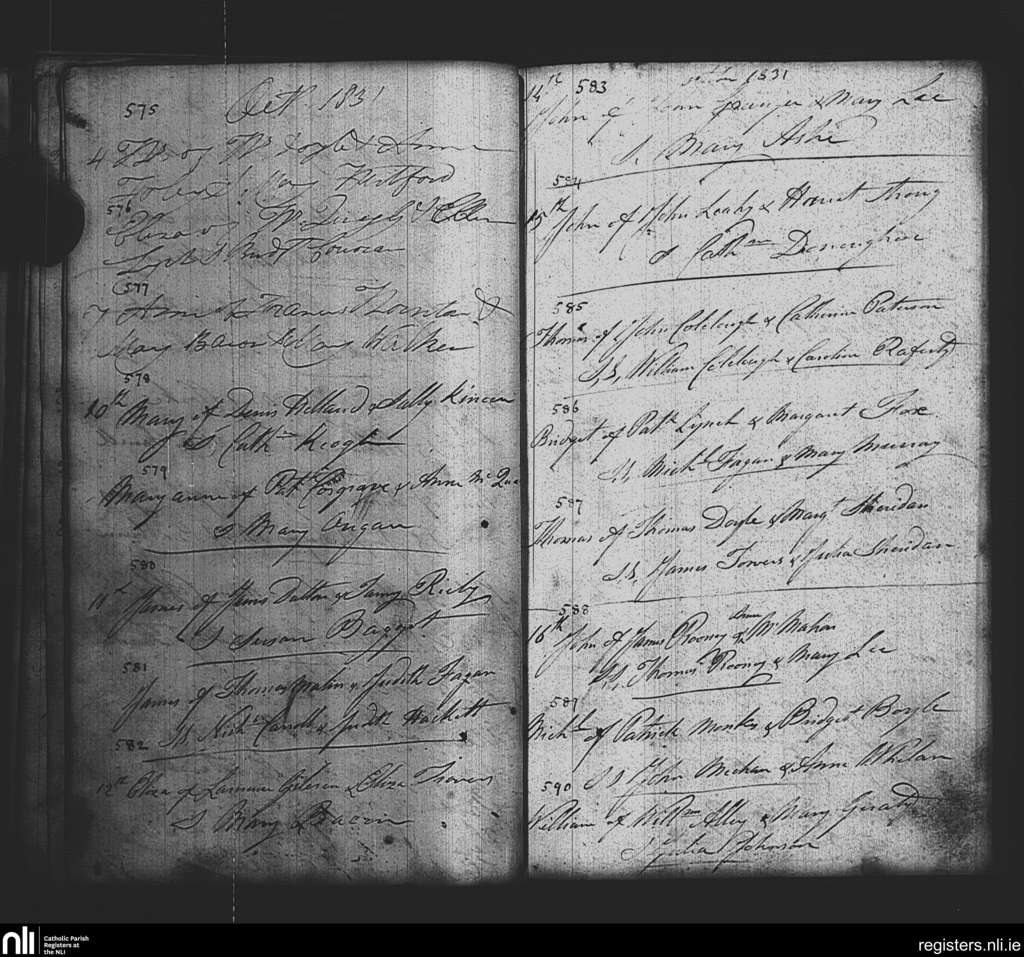 575 Oct. 1831
4 Thos of Wm Doyle & Anne
Mary Hertford
576
Eliza of & Ellen
S Bridt
577
7 Anne of Francis Thornton &
Mary Bacon S Mary Walker
578
10th Mary of Denis Holland & Sally
S, Cathne Keogh
579
Maryanne of Pat Cosgrave & Anne Mc
S Mary Angan
580
11th James of James Dalton & Fanny Rieby
S Susan Baggot
581
James of Thomas & Judith Fagan
SS. Nichs & Judth Hackett
582
12th Eliza of Laurence & Eliza Travers
S Mary Bacon
14th 583 1831
John of & Mary Lee
S. Mary Ashe
584
15th John of John Leahy & Harriet Strong
S Cathne Donoughue
585
Thomas of John Colclough & Catherine Paterson
S,S, William Colclough & Caroline Raferty
586
Bridget of Patk Lynch & Margaret Fox
SS, Michl Fagan & Mary Murray
587
Thomas of Thomas Doyle & Margt Sheridan
S.S. James Towers & Julia Sheridan
588
16th John of James Rooney & Anne McMahon
SS. Thomas Rooney & Mary Lee
589
Michl of Patrick Monks & Bridget Boyle
S S John Meehan & Anne Whelan
590
William of Willm Alley & Mary Geraty
S Julia Johnson
nli
Catholic Parish
Registers at
the NLI
registers.nli.ie